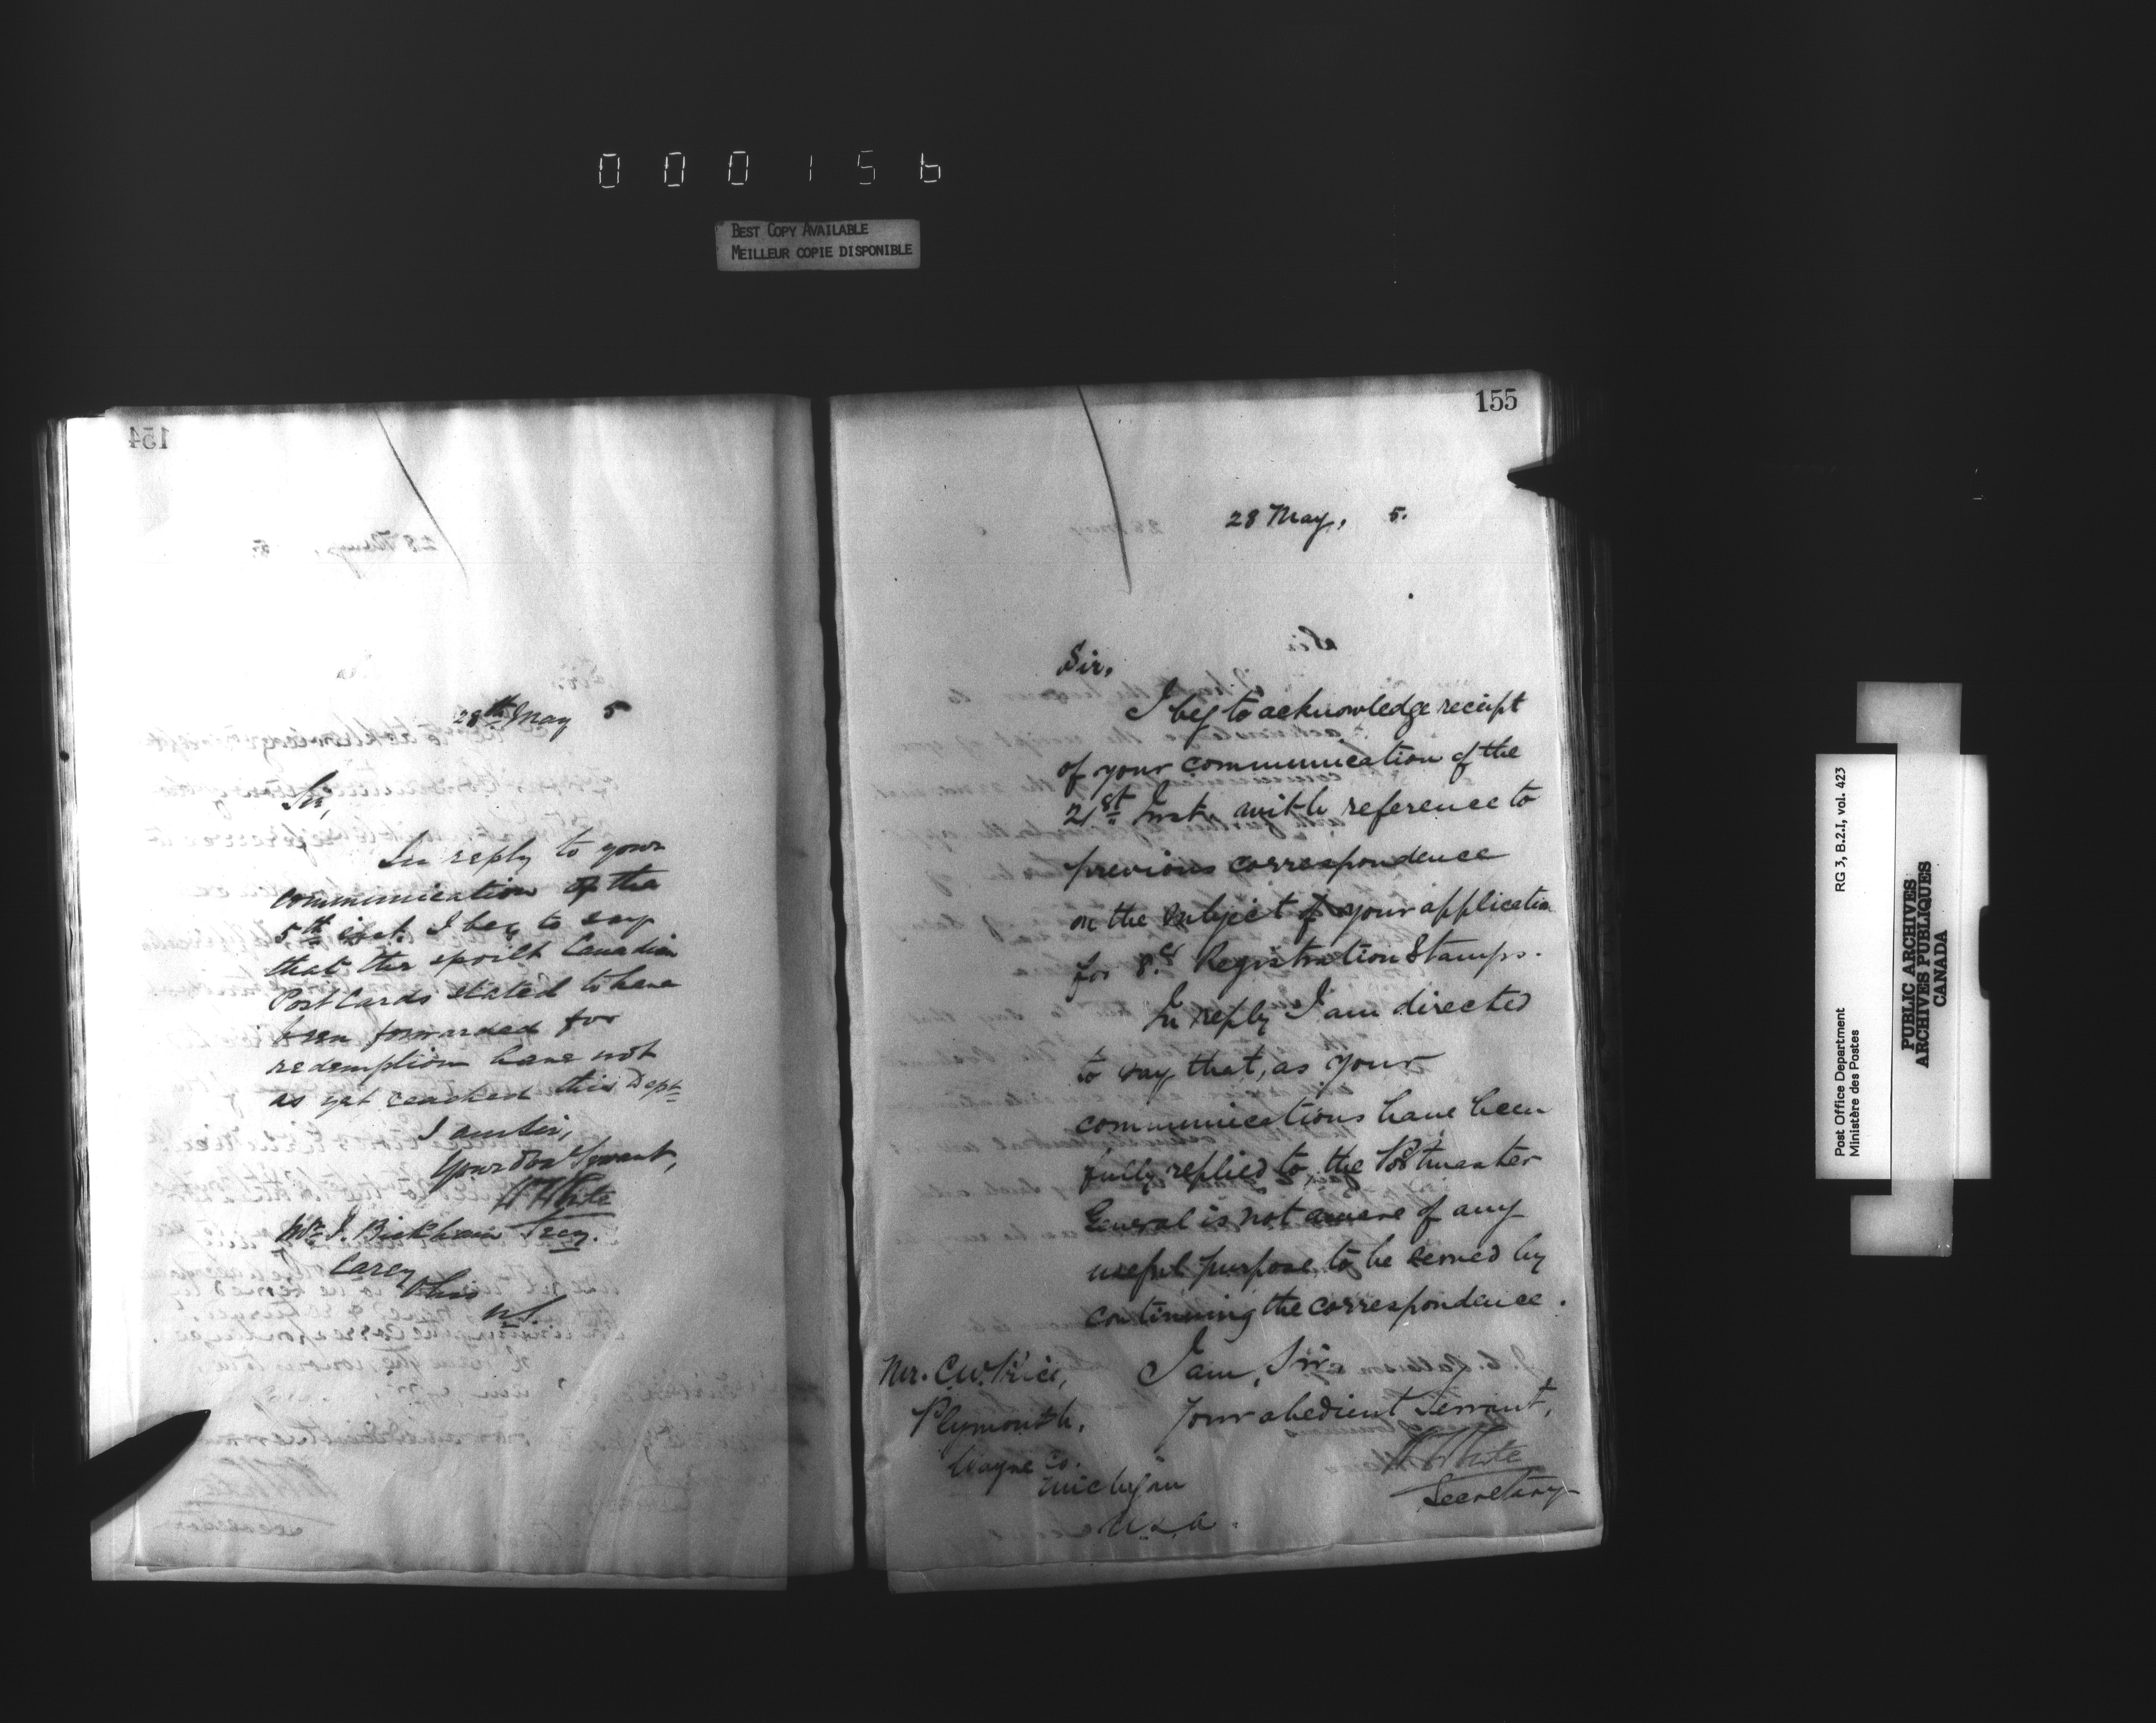 000156
BEST COPY AVAILABLE
MEILLEUR COPIE DISPONIBLE
154
28th May 5
Sir,
In reply to your
communication of the
5th inst. I beg to say
that the spoilt Canadian
Post Cards stated to have
been forwarded for
redemption have not
as yet reached this Dept
I am Sir,
Your Servant,
W H White
Mr. J. Bickham
Carey
Ohio
US
155
28 May, 5.
Sir,
I beg to acknowledge receipt
of your communication of the
21st Inst. with reference to
previous correspondence
on the subject of your application
for 8c Registration Stamps.
In reply I am directed
to say that, as your
communications have been
fully replied to, the Postmaster
General is not aware of any
useful purpose to be served by
continuing the correspondence.
I am, Sir,
Your obedient Servant,
W H White
Secretary
Mr. C.W. Price,
Plymouth,
Wayne Co.
Michigan
U.S.A.
Post Office Department
Ministère des Postes
RG 3, B.2.I, vol. 423
PUBLIC ARCHIVES
ARCHIVES PUBLIQUES
CANADA